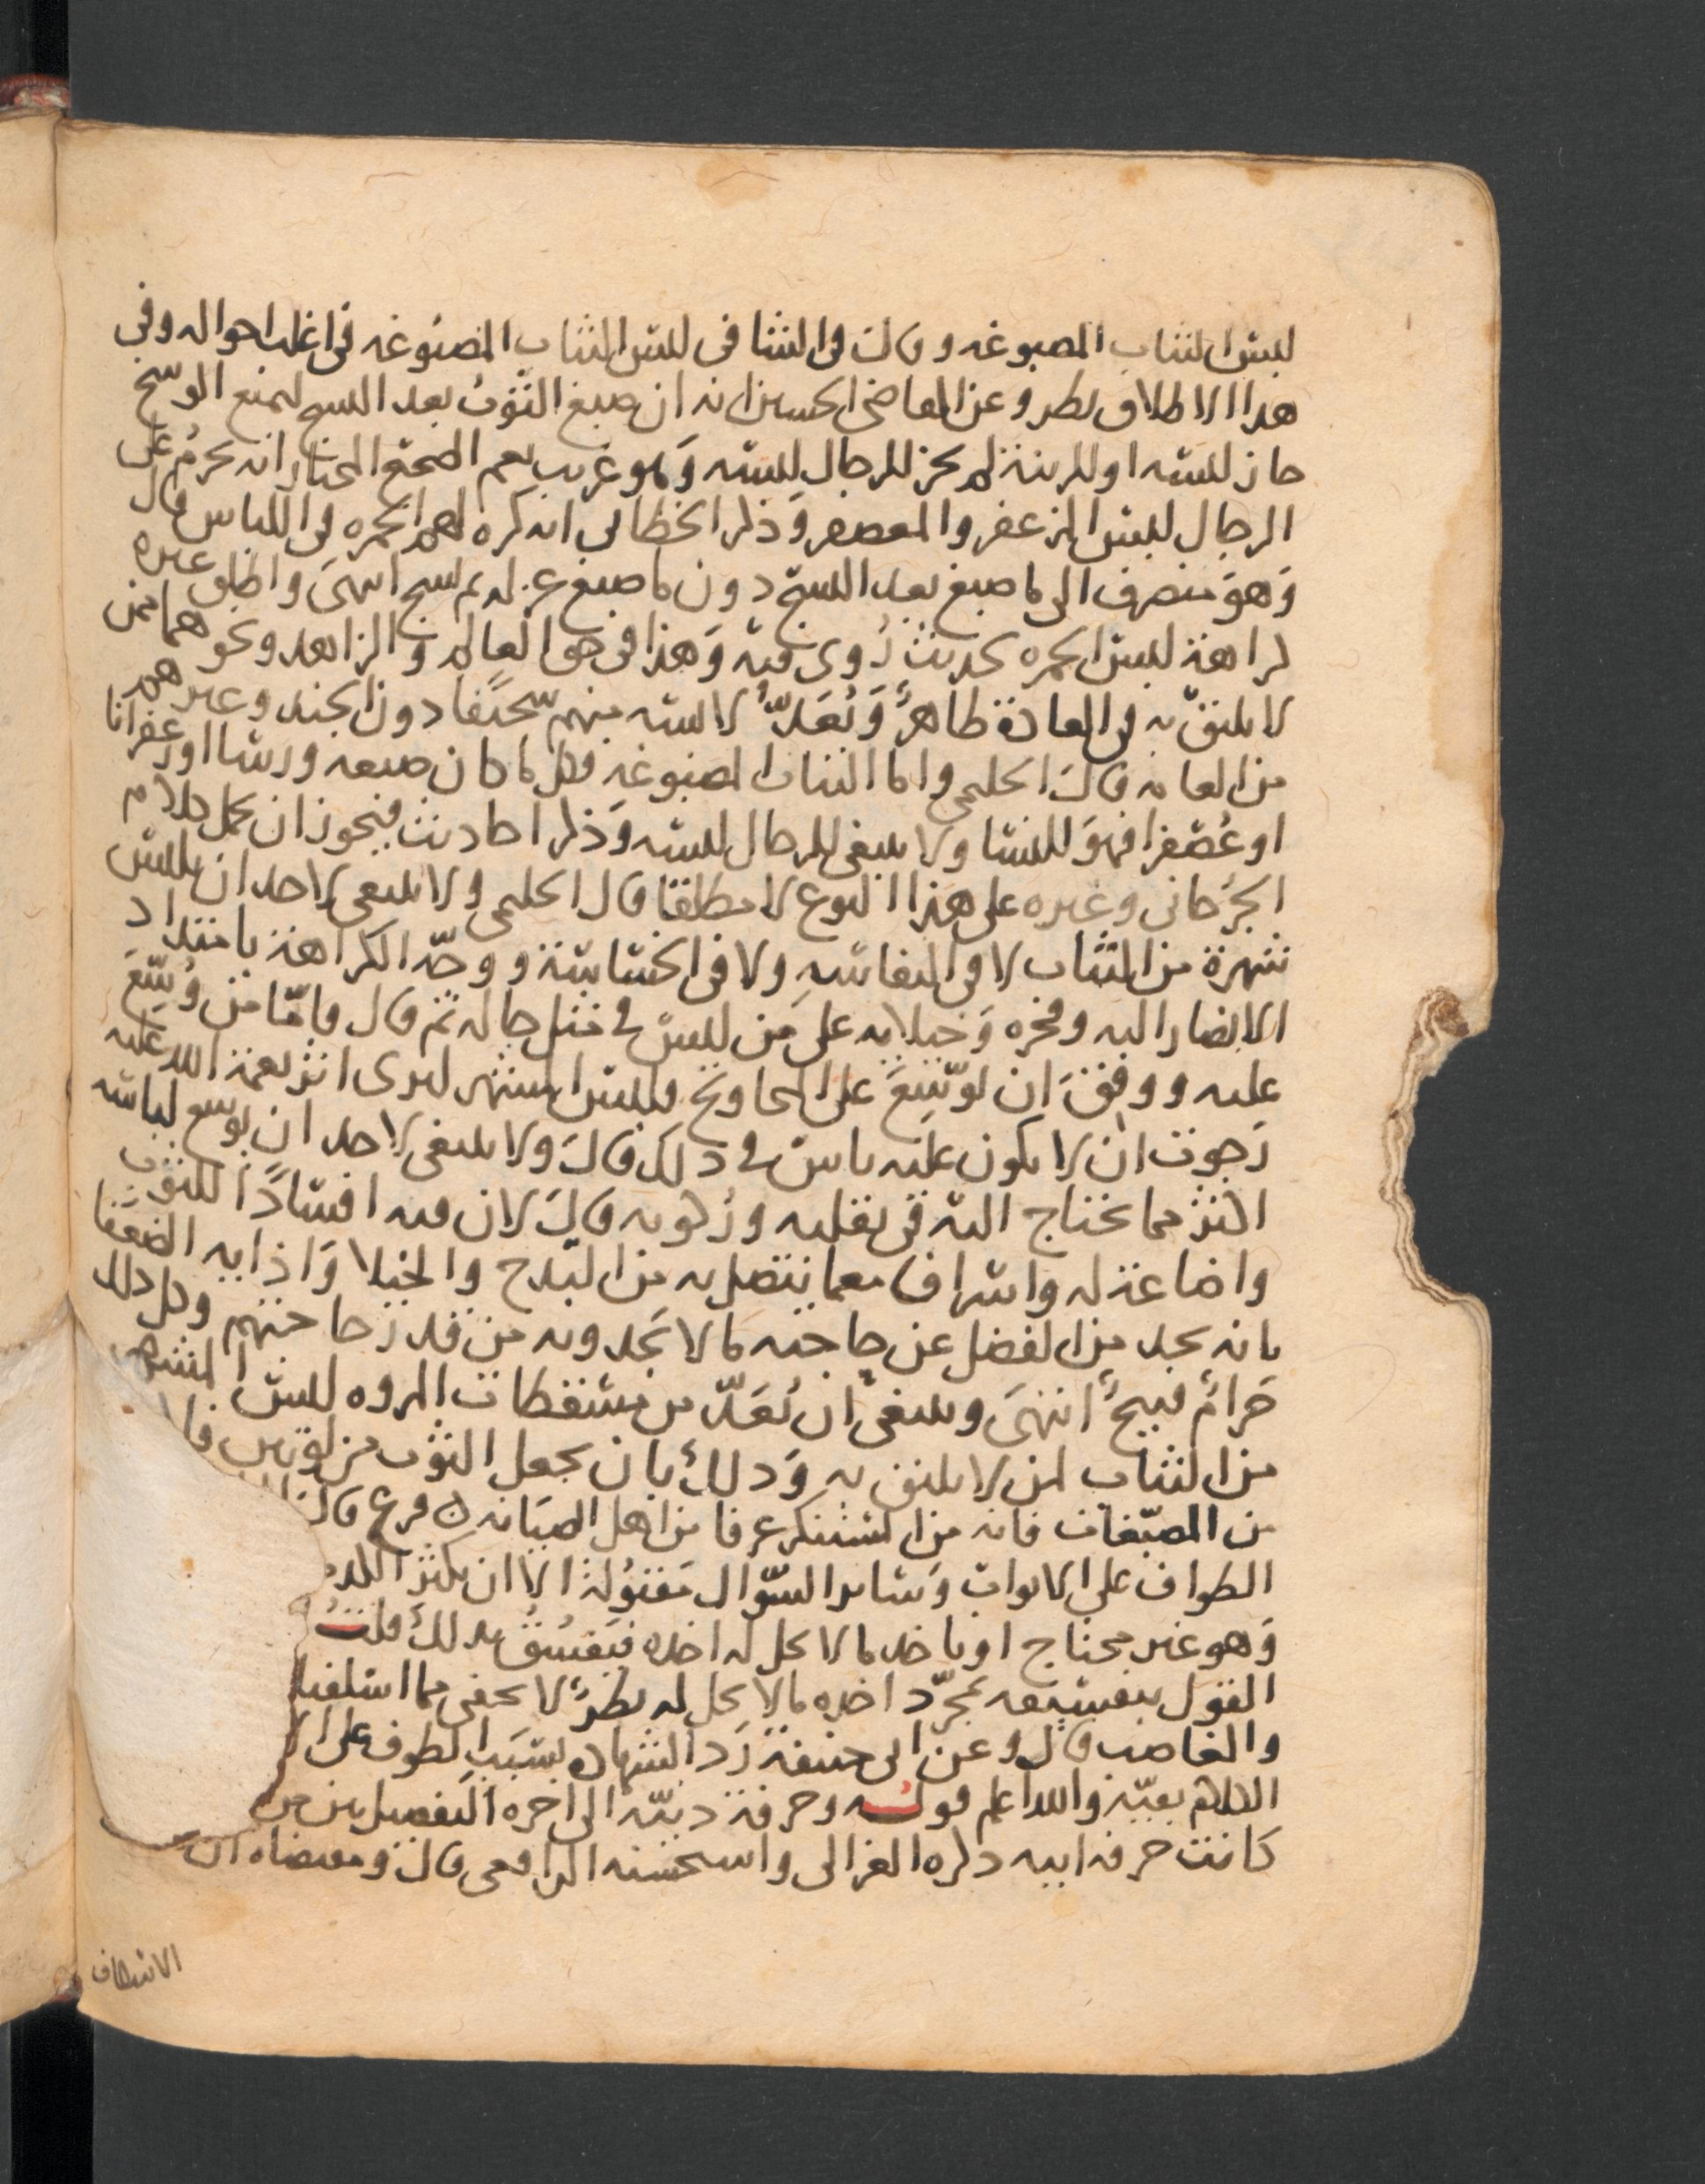 لبس الثياب المصبوغة وقال في الشافي للبس الثياب المصبوغه في اغلب احواله وفي
هذا الاطلاق نظر وعن القاضي الحسين انه ان صبغ الثوب بعد النسج ليمنع الوسخ
جاز لبسه او للزينة لم يجز للرجال لبسه وهو غريب نعم الصحيح المختار انه يحرم على
الرجال لبس المزعفر والمعصفر وذكر الخطابي انه كره لهم الحمره في اللباس قال
وهو منصرف الى ما صبغ بعد النسج دون ما صبغ غزله ثم نسج انتهى واطلق غيره
كراهة لبس الحمره لحديث روى فيه وهذا في حق العالم والزاهد ونحوهما ممن
لا يليق به في العادة ظاهر ويعد لابسه منهم سخيفا دون الجند وغيرهم
من العامه قال الحليمي واما الثياب المصبوغه فكل ما كان صبغه ورسا او زعفرانا
او عصفرا فهو للنسا ولا ينبغي للرجال لبسه وذكر احاديث فيجوز ان يحمل كلام
الجرجاني وغيره على هذا النوع لا مطلقا قال الحليمي ولا ينبغي لاحد ان يلبس
شهرة من الثياب لا في النفاسه ولا في الخساسة ووجه الكراهة بامتداد
الابصار اليه وفخره وخيلايه على من لبس في مثل حاله ثم قال فاما من وسع
عليه ووفق ان يوسع على المحاويج فلبس المشهر ليرى اثر نعمة الله عليه
رجوت ان لا يكون عليه باس في ذلك قال ولا ينبغي لاحد ان يوسع لباسه
اكثر مما يحتاج اليه في تقلبه وركوبه قال لان فيه افسادا للثوب
واضاعة له واسراف معما يتصل به من البذخ والخيلا واذايه الضعفا
بانه يجد من الفضل عن حاجته ما لا يجدونه من قدر حاجتهم وكل ذلك
حرام قبيح انتهى وينبغي ان يعد من مسقطات المروه لبس المشهر
من الثياب لمن لا يليق به وذلك بان يجعل الثوب من لونين
من المصبغات فانه من المستنكر عرفا من اهل الصيانه فرع قال
الطواف على الابواب وساير السوال مقبولة الا ان يكثر الكذب
وهو غير محتاج او ياخذ ما لا يحل له اخذه فيفسق بذلك قلت
القول بتفسيقه بمجرد اخذه مالا يحل له نظر لا يخفى مما اسلفنا
والغاصب قال وعن ابي حنيفة رد الشهاده بسبب الطوف على
الكلام بقيه والله اعلم قوله وحرفة دنيه الى اخره التفصيل بين من
كانت حرفه ابيه ذكره الغزالي واستحسنه الرافعي قال ومقتضاه ان
الاسكاف